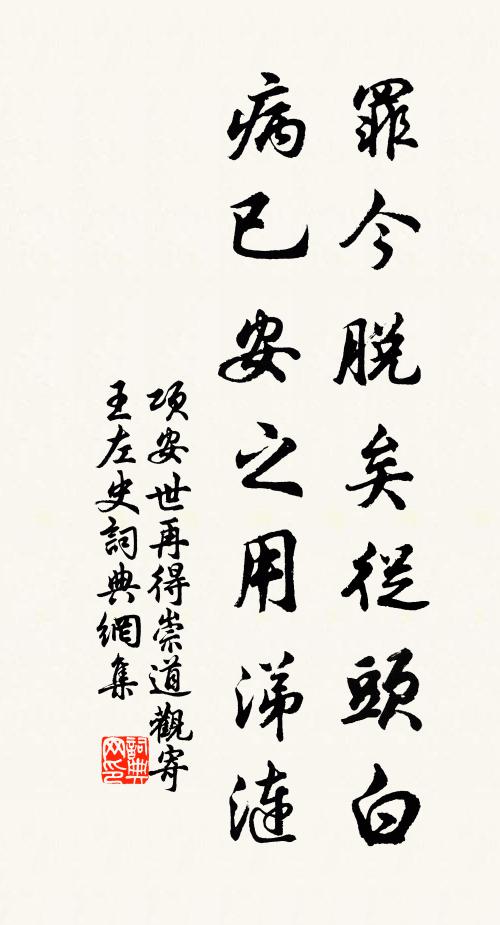 罪今脫矣從頭白
病已安之用涕漣
項安世再得崇道觀寄
王左史詞典網集
詞典網印